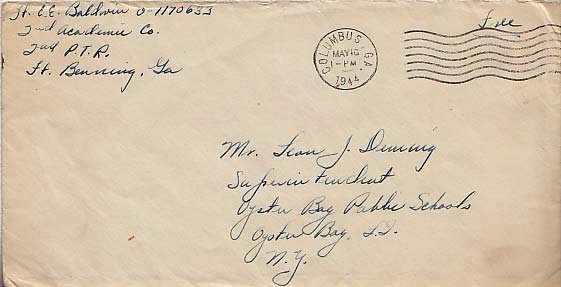 Lt. E.E. Baldwin O-1170633
2nd Academic Co.
2nd P.T.R.
Ft. Benning, Ga
Free
COLUMBUS, GA.
MAY 16
1-PM
1944
Mr. Leon J. Deming
Superintendent
Oyster Bay Public Schools
Oyster Bay, L.I.
N.Y.